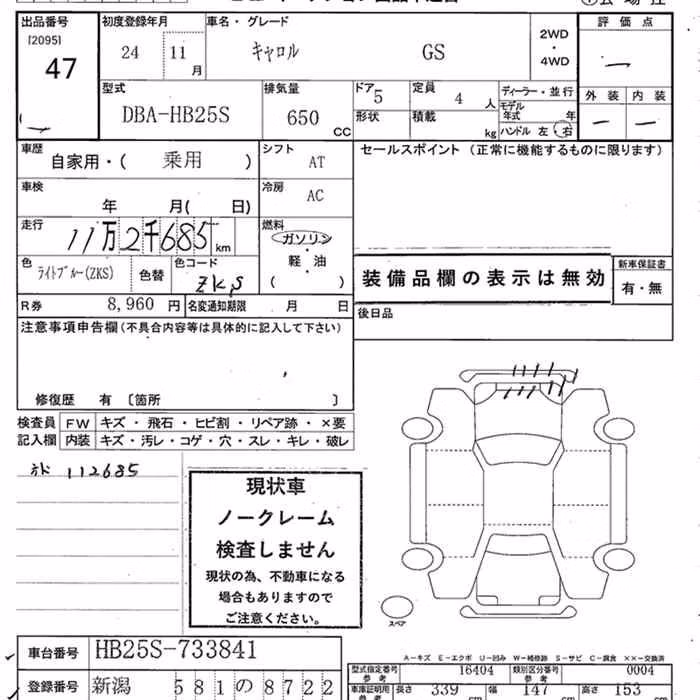 出品番号 初度登録年月 車名・グレード 評価点
[2095] 47 24 11月 キャロル GS 2WD・4WD —
型式 排気量 ドア 5 定員 4人 ディーラー・並行 外装 内装
DBA-HB25S 650 CC 形状 積載 kg モデル年式 年 — —
ハンドル 左・右
車歴 シフト セールスポイント(正常に機能するものに限ります)
自家用・( 乗用 ) AT
車検 冷房
年 月( 日) AC
走行 燃料
11万2千685km ガソリン
軽・油
( )
色 色替 色コード
ライトブルー(ZKS) ZKS
装備品欄の表示は無効 新車保証書
有・無
R券 8,960 円 名変通知期限 月 日 後日品
注意事項申告欄(不具合内容等は具体的に記入して下さい)
修復歴 有 〔箇所 〕
検査員 FW キズ・飛石・ヒビ割・リペア跡・×要
記入欄 内装 キズ・汚レ・コゲ・穴・スレ・キレ・破レ
112685
現状車
ノークレーム
検査しません
現状の為、不動車になる
場合もありますので
ご注意ください。
スペア
車台番号 HB25S-733841
A-キズ E-エクボ U-凹み W-補修跡 S-サビ C-腐食 ××-交換済
型式指定番号 参考 16404 類別区分番号 参考 0004
登録番号 新潟 581の8722
車庫証明用 参考 長さ 339 cm 幅 147 cm 高さ 153 cm